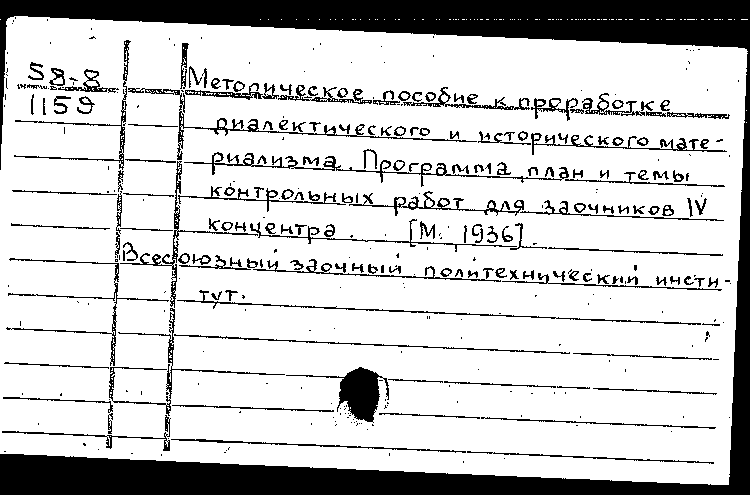 58-8
1159
Методическое пособие к проработке
диалектического и исторического мате-
риализма. Программа, план и темы
контрольных работ для заочников IV
концентра. [М. 1936].
Всесоюзный заочный политехнический инсти-
тут.